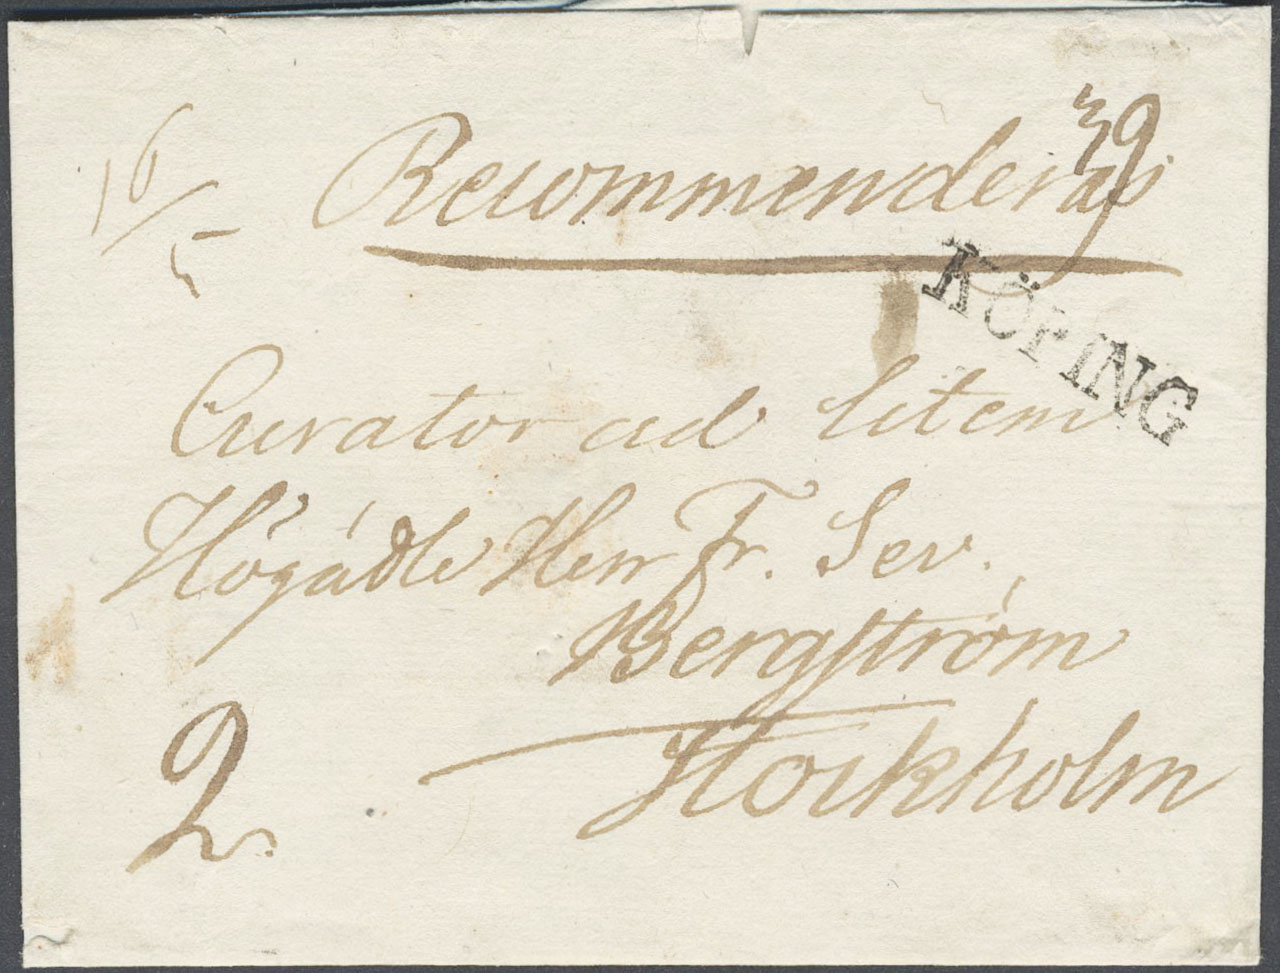 39
16/5
Recommenderas
KÖPING
Curator ad Litem
Högädle Herr Fr. Sev.
Bergström
Stockholm
2.